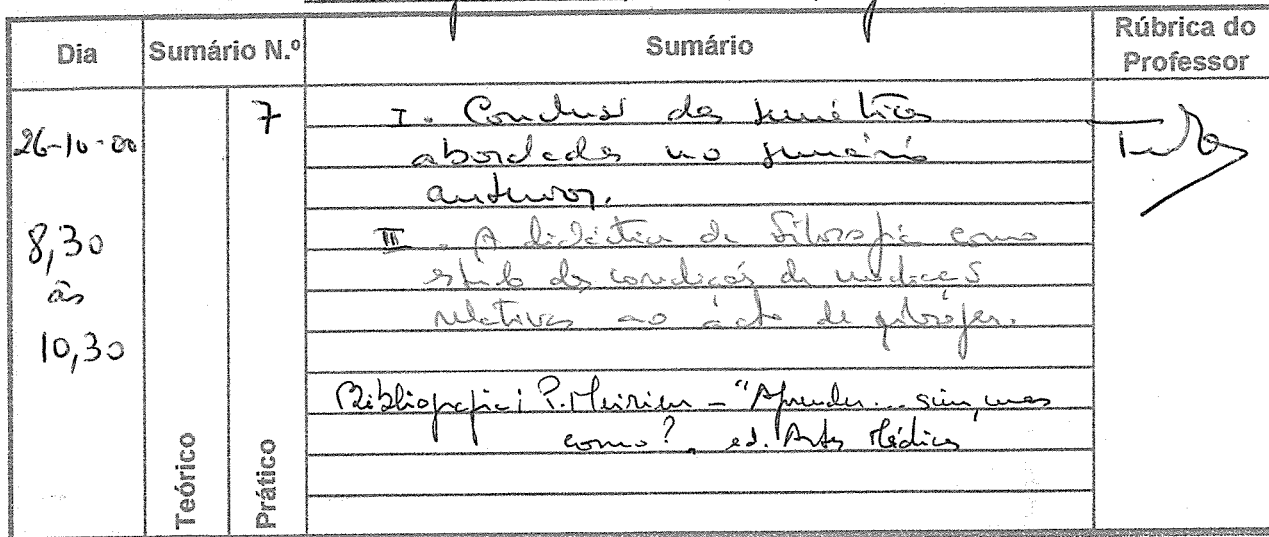 Dia Sumário N.º Sumário Rúbrica do Professor
26-10-00
8,30
às
10,30
Teórico
Prático
7
I - Conclusão das temáticas
abordadas no sumário
anterior.
II - A didáctica da Filosofia como
estudo das condições de mediação
relativas ao acto de filosofar.
Bibliografia: P. Meirieu - "Aprender... sim, mas
como?, ed. Artes Médicas